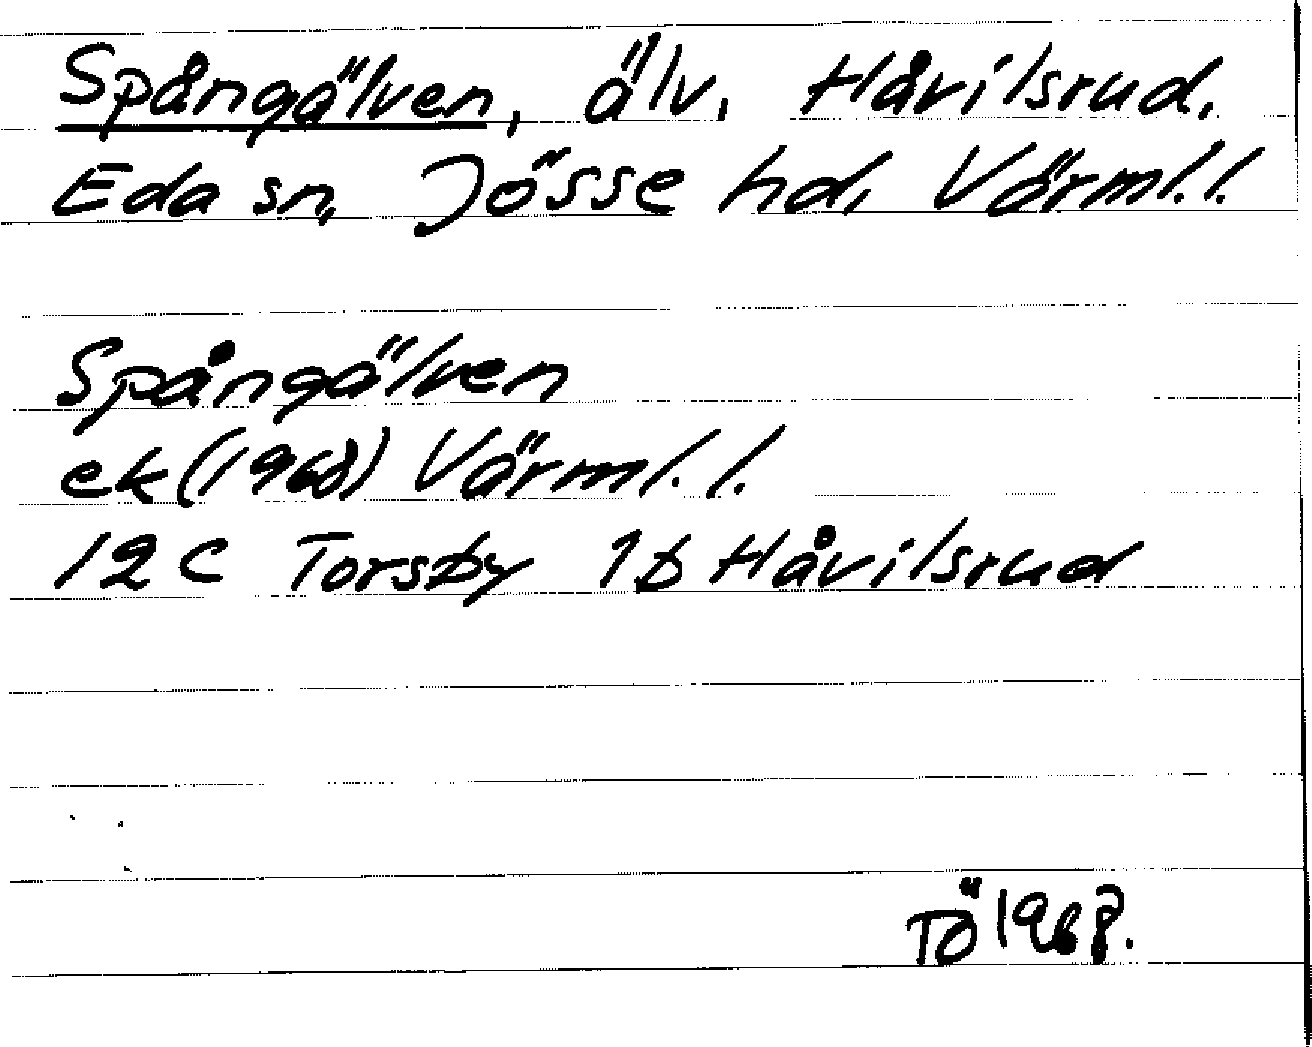 Spångälven, älv, Håvilsrud,
Eda sn, Jösse hd, Värml. l.
Spångälven
ek (1968) Värml. l.
12 C Torsby 1b Håvilsrud
TÖ 1968.